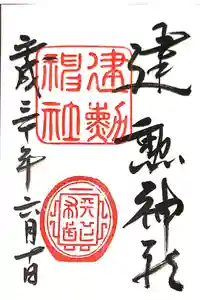 建勲神社
建勲
神社
平成三十年六月一日